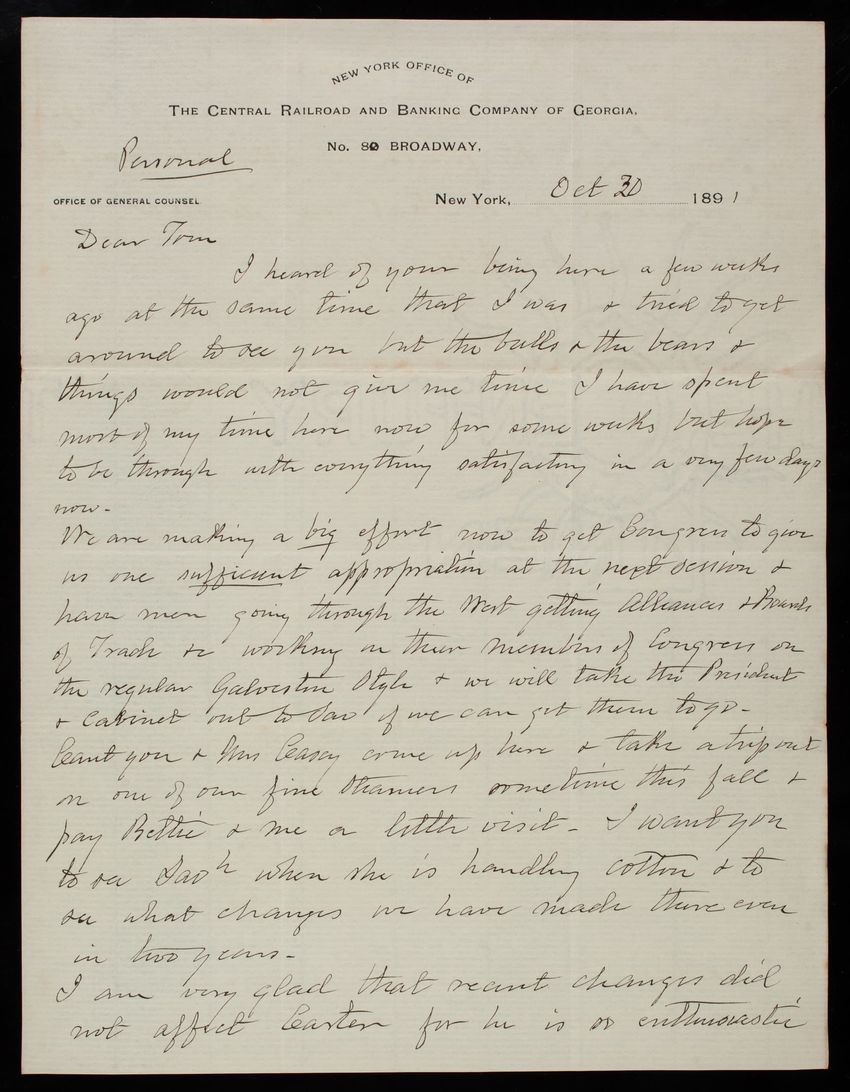 NEW YORK OFFICE OF
THE CENTRAL RAILROAD AND BANKING COMPANY OF GEORGIA,
No. 80 BROADWAY,
Personal
OFFICE OF GENERAL COUNSEL
New York, Oct 30 1891
Dear Tom
I heard of your being here a few weeks
ago at the same time that I was & tried to get
around to see you but the bulls & the bears &
things would not give me time I have spent
most of my time here now for some weeks but hope
to be through with everything satisfactory in a very few days
now -
We are making a big effort now to get Congress to give
us one sufficient appropriation at the next session &
have men going through the West getting Alliances & Boards
of Trade &c working on their members of Congress on
the regular Galveston Style & we will take the President
& Cabinet out to Sav if we can get them to go -
Cant you & Mrs Casey come up here & take a trip out
on one of our fine steamers sometime this fall &
pay Bettie & me a little visit - I want you
to see Savh when she is handling cotton & to
see what changes we have made there even
in two years -
I am very glad that recent changes did
not affect Carter for he is so enthusiastic